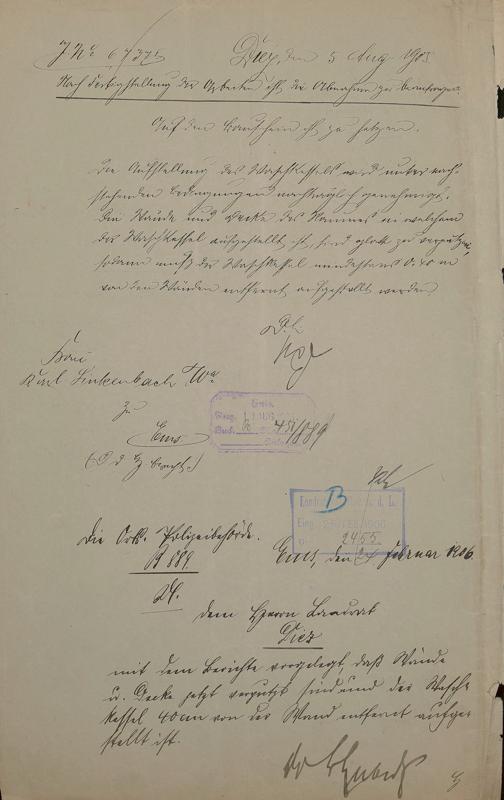 J. No 6737
Diez, den 5 Aug. 1905
Nach Fertigstellung der Arbeiten ist die Abnahme zu beantragen.
Auf den Bauschein ist zu setzen.
Die Aufstellung des Waschkessels wird unter nach-
stehenden Bedingungen nachträglich genehmigt.
Die Wände und Decke des Raumes in welchem
der Waschkessel aufgestellt ist, sind glatt zu verputzen,
sodann muß der Waschkessel mindestens 0,40 m
von den Wänden entfernt aufgestellt werden
D. L.
Frau
Karl Linkenbach Wwe
zu
Ems
Ems
451/889
B
2455
Die Orts. Polizeibehörde.
B 889.
Ems, den 24 Februar 1906.
dem Herrn Landrat
Diez
mit dem Berichte vorgelegt, daß Wände
u. Decke jetzt verputzt sind und der Wasch-
kessel 40 cm von der Wand entfernt aufge-
stellt ist.